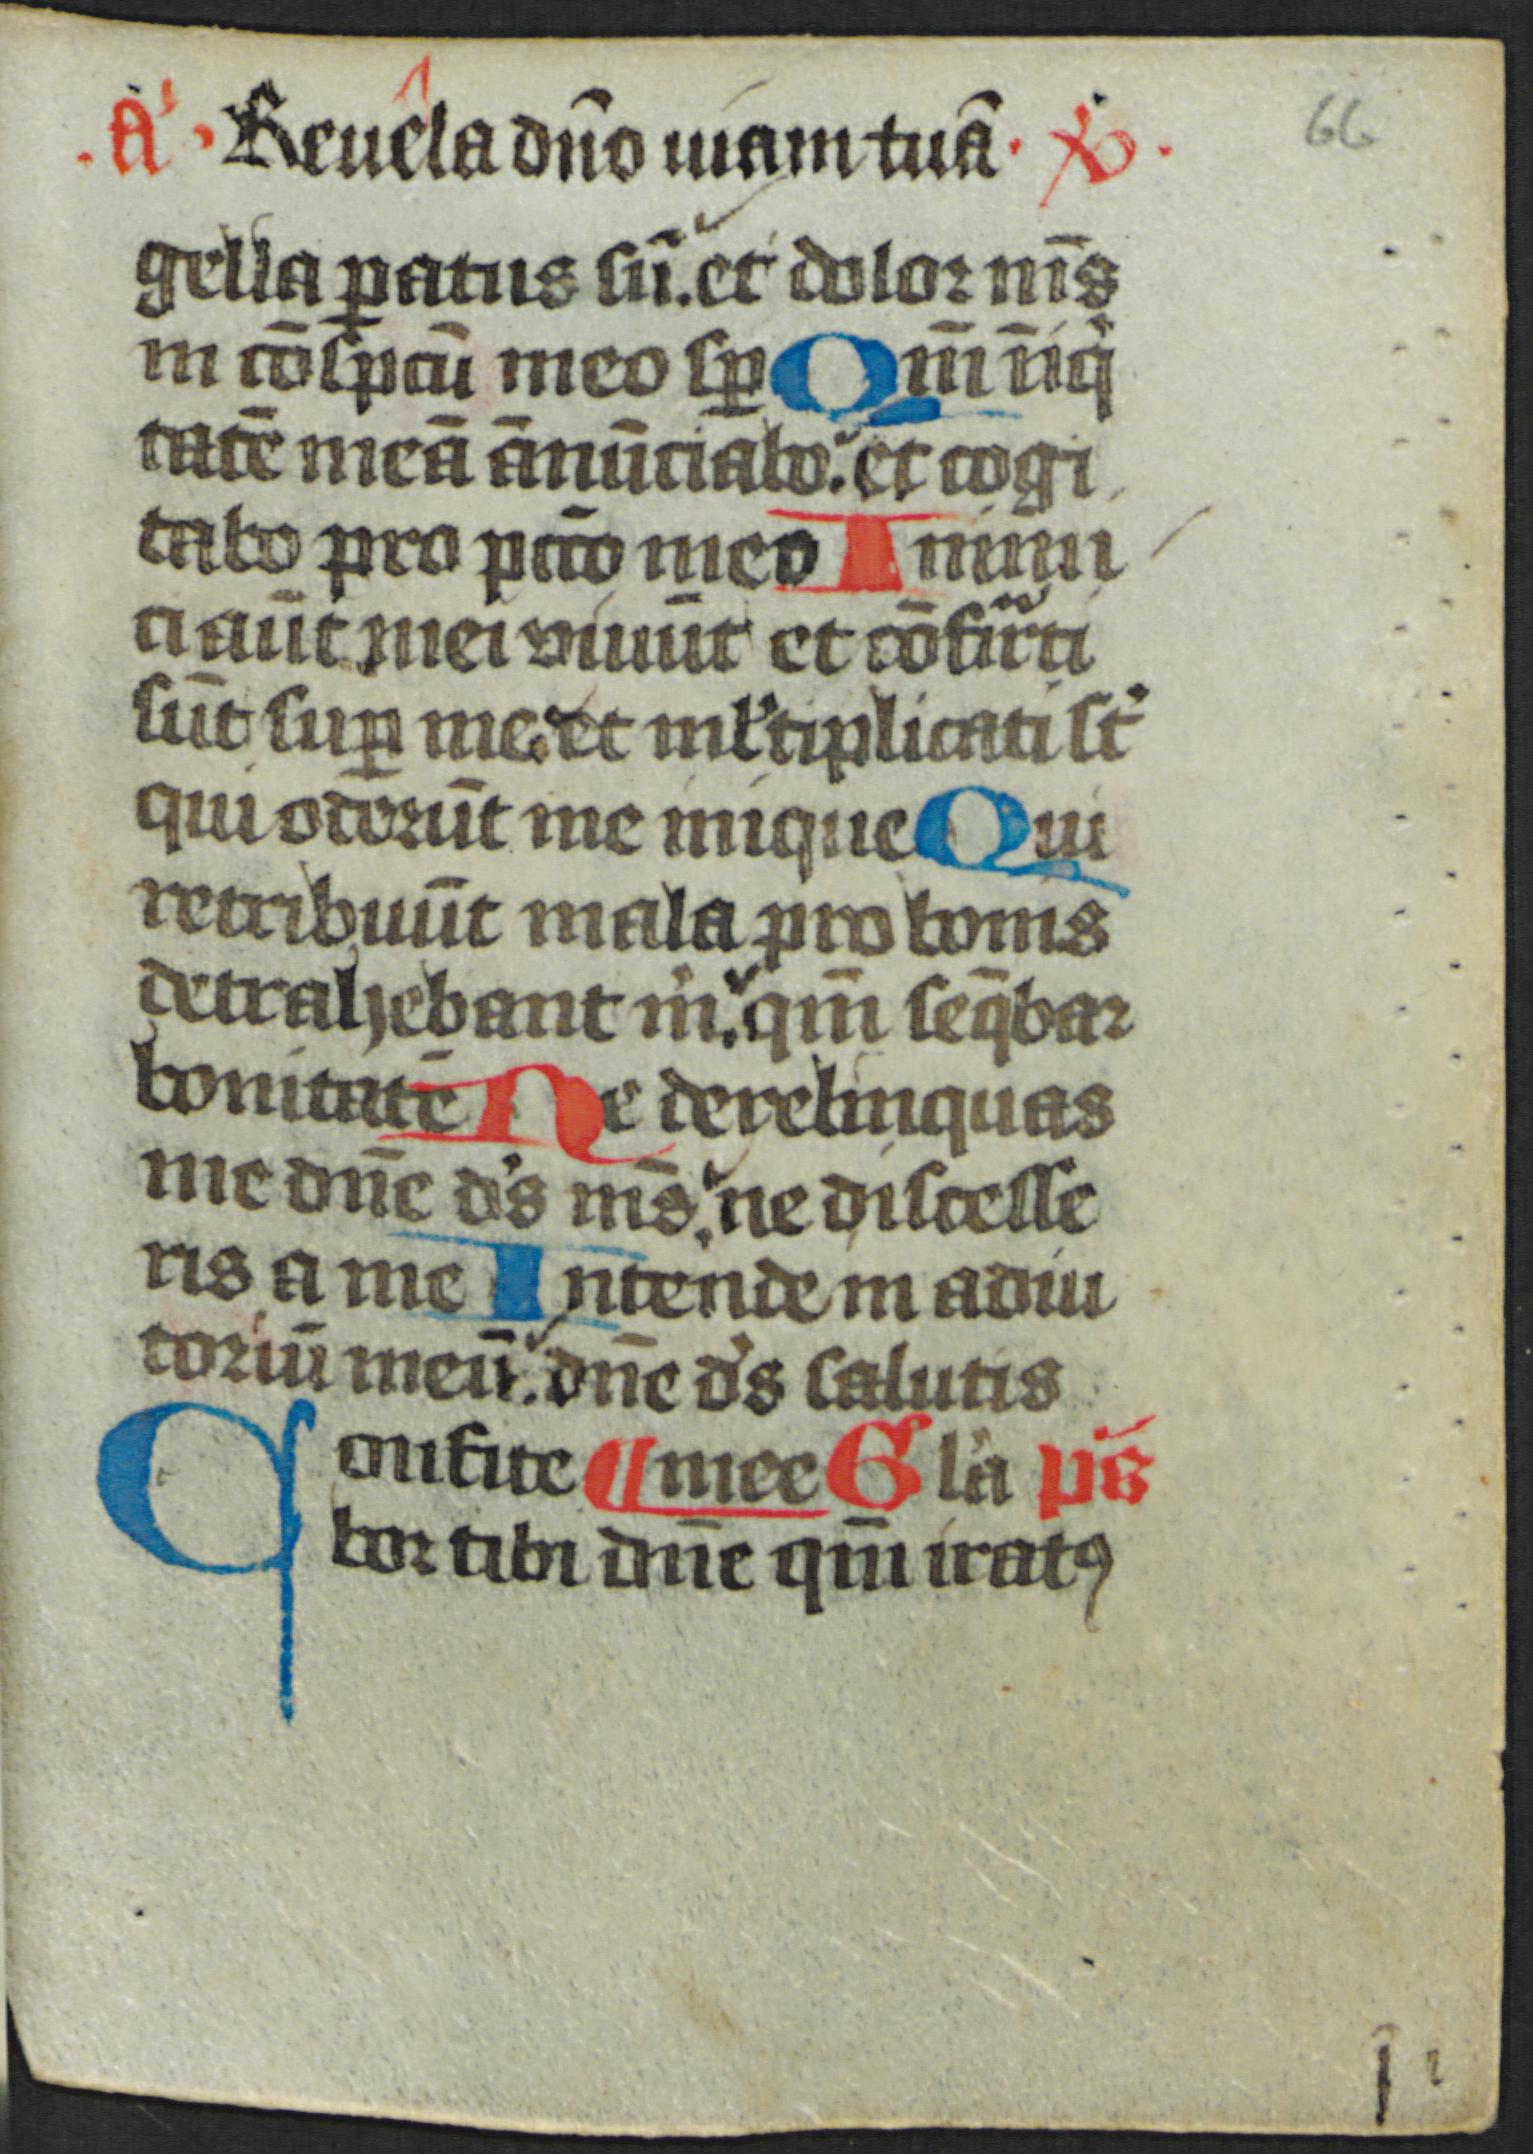 66
.A. Reuela dn̄o uiam tuā.
gella ꝑatus sū. et dolor mr̄s
in cōspc̄tu meo sꝑ Qm̄ iniq̄
tatē meā ānūciabo. et cogi
tabo pro pc̄c̄o meo Inimi
ci aūt mei uiuūt et cōfirᵃti
sūt suꝑ me. et ml̓tiplicati st̄
qui oderūt me inique Qui
retribuūt mala pro bonis
detrahebant m̄. qm̄ seq̄bar
bonitatē Ne derelinquas
me dn̄e ds̓ ms̄. ne discesse
ris a me Intende in adiu
toriū meū. dn̄e ds̓ salutis
Confite ¶ mee Gl̓a ps̄
bor tibi dn̄e qm̄ iratꝰ